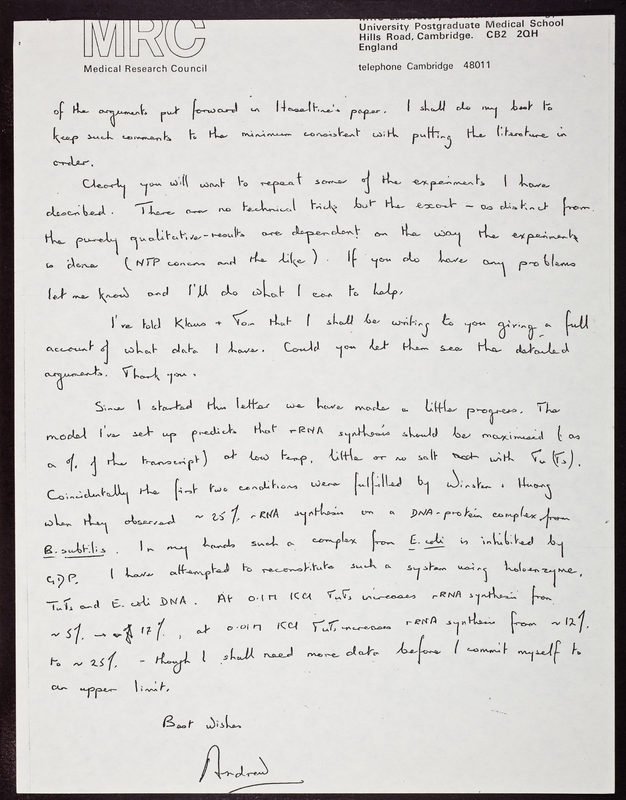 MRC
Medical Research Council
University Postgraduate Medical School
Hills Road, Cambridge. CB2 2QH
England
telephone Cambridge 48011
of the arguments put forward in Haseltine's paper. I shall do my best to
keep such comments to the minimum consistent with putting the literature in
order.
Clearly you will want to repeat some of the experiments I have
described. There are no technical tricks but the exact – as distinct from
the purely qualitative – results are dependent on the way the experiments
is done (NTP concns and the like). If you do have any problems
let me know and I'll do what I can to help.
I've told Klaus + Tom that I shall be writing to you giving a full
account of what data I have. Could you let them see the detailed
arguments. Thank you.
Since I started this letter we have made a little progress. The
model I've set up predicts that rRNA synthesis should be maximised (as
a % of the transcript) at low temp, little or no salt with Tu(Ts).
Coincidentally the first two conditions were fulfilled by Winsten + Huang
when they observed ~25% rRNA synthesis on a DNA-protein complex from
B. subtilis. In my hands such a complex from E. coli is inhibited by
GDP. I have attempted to reconstitute such a system using holoenzyme,
TuTs and E. coli DNA. At 0.1M KCl TuTs increases rRNA synthesis from
~5% → 17%, at 0.01M KCl TuTs increases rRNA synthesis from ~12%
to ~25% – though I shall need more data before I commit myself to
an upper limit.
Best Wishes
Andrew